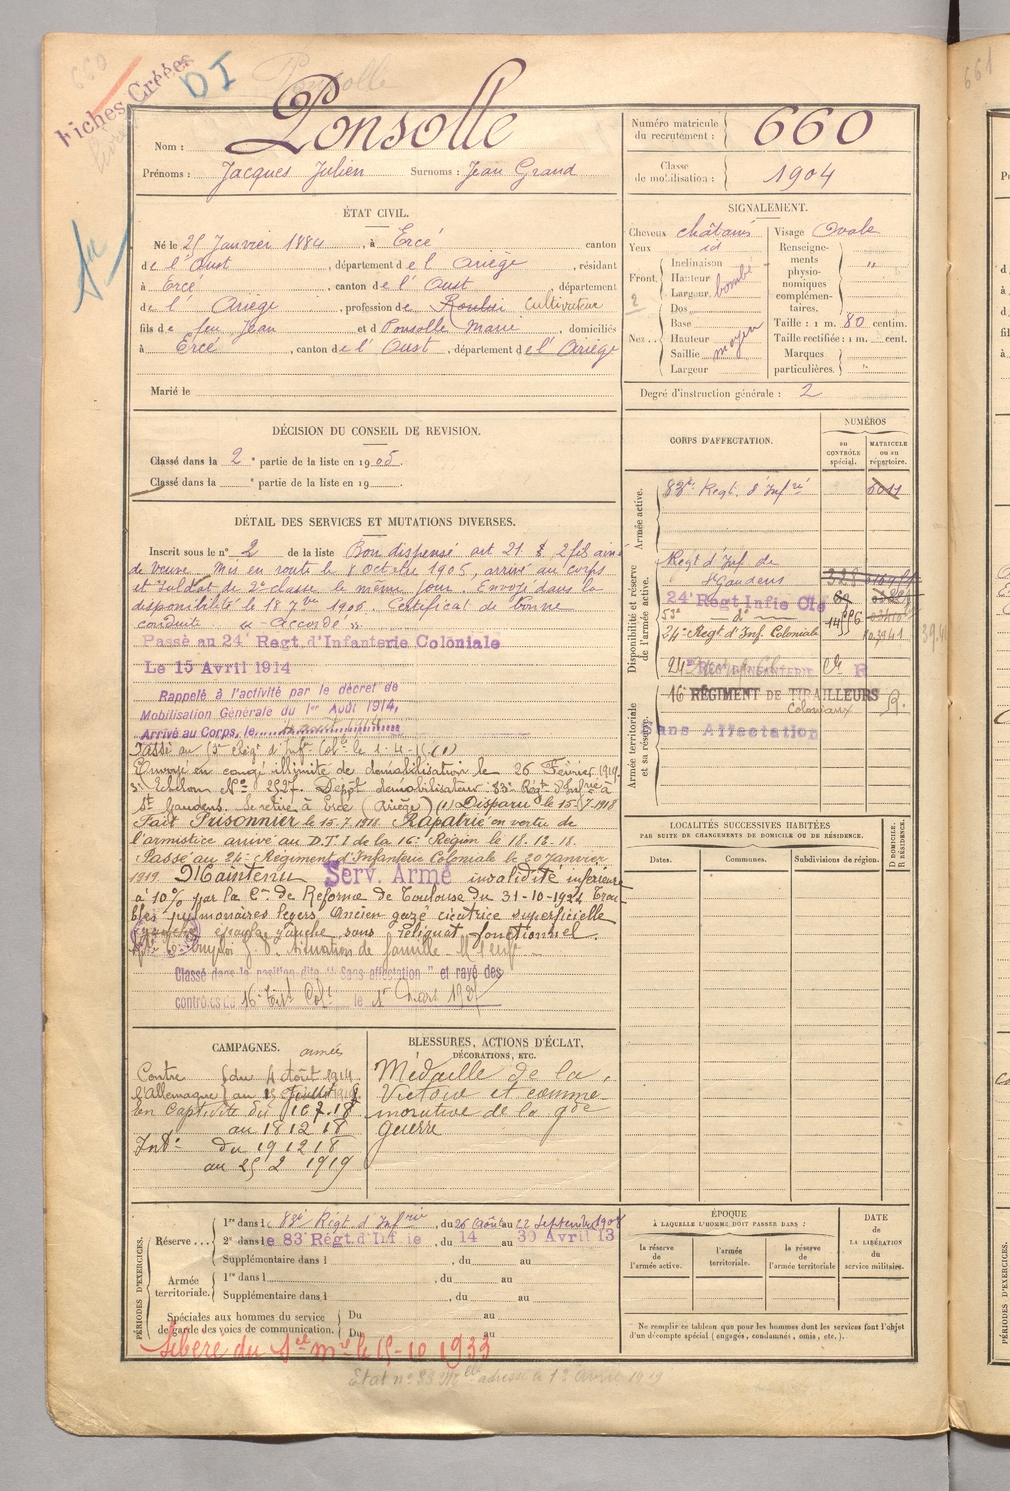 660
Fiches Créées
DI
Ponsolle
Nom : Ponsolle
Prénoms : Jacques Julien Surnoms : Jean Grand
Numéro matricule du recrutement : 660
Classe de mobilisation : 1904
ÉTAT CIVIL.
Né le 25 Janvier 1884, à Ercé canton
de l'Oust, département de l'Ariège, résidant
à Ercé, canton de l'Oust département
de l'Ariège, profession de Cultivateur
fils de feu Jean et de Ponsolle Marie, domiciliés
à Ercé, canton de l'Oust, département de l'Ariège
Marié le
SIGNALEMENT.
Cheveux châtains
Yeux id
Front. Inclinaison
Hauteur
Largeur bombé
Nez.. Dos
Base
Hauteur moyen
Saillie
Largeur
Visage Ovale
Renseignements physionomiques complémentaires. "
Taille : 1 m. 80 centim.
Taille rectifiée : 1 m. cent.
Marques particulières. "
Degré d'instruction générale : 2
DÉCISION DU CONSEIL DE REVISION.
Classé dans la 2e partie de la liste en 1905.
Classé dans la e partie de la liste en 19
DÉTAIL DES SERVICES ET MUTATIONS DIVERSES.
Inscrit sous le n° 2 de la liste Bon dispensé art 21 § 2 fils aîné
de veuve. Mis en route le 8 Octobre 1905, arrivé au corps
et soldat de 2e classe le même jour. Envoyé dans la
disponibilité le 18 7bre 1906. Certificat de bonne
conduite "Accordé".
Passé au 24e Regt. d'Infanterie Coloniale
Le 15 Avril 1914
Rappelé à l'activité par le décret de
Mobilisation Générale du 1er Août 1914,
Arrivé au Corps, le 4 août 1914
Passé au 53e Regt d'Infie Colle le 1-4-15 (1)
Envoyé en congé illimité de démobilisation le 26 Février 1919
3e Echelon No 2527. Dépôt démobilisateur 83e Régt d'Infrie à
St Gaudens. Se retire à Ercé (Ariège) (1) Disparu le 15-7-1918
Fait Prisonnier le 15.7.1918 Rapatrié en vertu de
l'armistice arrivé au D.T.I de la 16e Région le 18.12.18.
Passé au 24e Régiment d'Infanterie Coloniale le 20 Janvier
1919. Maintenu Serv. Armé invalidité inférieure
à 10% par la Con de Réforme de Toulouse du 31-10-1924 Trou
bles pulmonaires légers. Ancien gazé cicatrice superficielle
épaule gauche sans reliquat fonctionnel.
situation de famille
Classé dans la position dite "Sans affectation" et rayé des
contrôles du 16e Tirt Colx le 1er Mars 1927
CORPS D'AFFECTATION.
NUMÉROS
AU CONTRÔLE spécial.
MATRICULE ou au répertoire.
Armée active.
83e Regt. d'Infrie
Disponibilité et réserve de l'armée active.
Regt d'Inf de
St Gaudens
24e Regt Infie Cle
53e d°
24e Regt d'Inf. Coloniale
Armée territoriale et sa réserve.
24e REGT D'INFANTERIE Cle R
16e RÉGIMENT DE TIRAILLEURS
Coloniaux R.
Sans Affectation
LOCALITÉS SUCCESSIVES HABITÉES
PAR SUITE DE CHANGEMENTS DE DOMICILE OU DE RÉSIDENCE.
Dates. Communes. Subdivisions de région.
D DOMICILE. R RÉSIDENCE.
CAMPAGNES.
armées
Contre du 4 Août 1914
l'Allemagne au 15 Juillet 1918
En Captivité du 16.7.18
au 18 12 18
Intre du 19 12 18
au 25 2 1919
BLESSURES, ACTIONS D'ÉCLAT,
DÉCORATIONS, ETC.
Médaille de la
Victoire et comme-
morative de la gde
guerre
PÉRIODES D'EXERCICES.
Réserve... 1re dans le 83e Régt d'Infrie, du 26 Août au 22 Septembre 1908
2e dans le 83e Régt. d'Inf.ie, du 14 au 30 Avril 13
Supplémentaire dans l , du au
Armée territoriale. 1re dans l , du au
Supplémentaire dans l , du au
Spéciales aux hommes du service de garde des voies de communication. Du au
Du au
Libéré du Sce mre le 15-10 1933
Etat n° 33
ÉPOQUE
À LAQUELLE L'HOMME DOIT PASSER DANS :
la réserve de l'armée active.
l'armée territoriale.
la réserve de l'armée territoriale
DATE de LA LIBÉRATION du service militaire.
Ne remplir ce tableau que pour les hommes dont les services font l'objet
d'un décompte spécial (engagés, condamnés, omis, etc.).
661